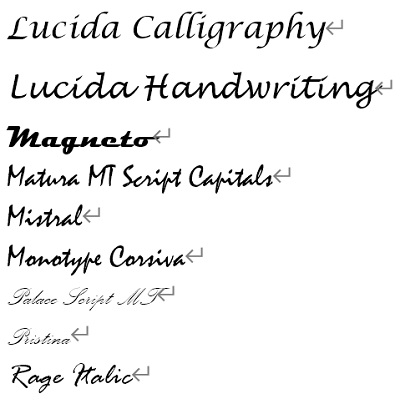 Lucida Calligraphy
Lucida Handwriting
Magneto
Matura MT Script Capitals
Mistral
Monotype Corsiva
Palace Script MT
Pristina
Rage Italic